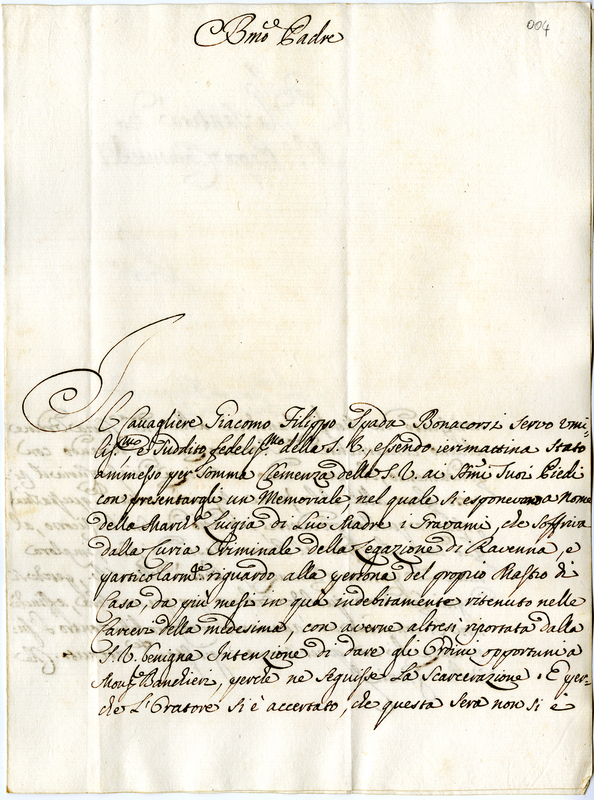 004
Bmõ Padre
Il Cavagliere Giacomo Filippo Spada Bonacorsi servo umi-
liss.mo e Suddito fedeliss.mo della S. V., essendo ierimattina Stato
ammesso per Somma Clemenza della S. V. ai Smi Suoi Piedi
con presentargli un Memoriale, nel quale Si esponevano a nome
della March.a Luigia di Lui Madre i Gravami, che Soffriva
dalla Curia Criminale della Legazione di Ravenna, e
particolarm.e riguardo alla persona del proprio Mastro di
Casa, da più mesi in quà indebitamente ritenuto nelle
Carceri della medesima, con averne altresì riportata dalla
S. V. benigna Intenzione di dare gli Ordini opportuni a
Mons.r Banchieri, perche ne Seguisse La Scarcerazione. E per-
che L'Oratore Si è accertato, che questa Sera non Si è